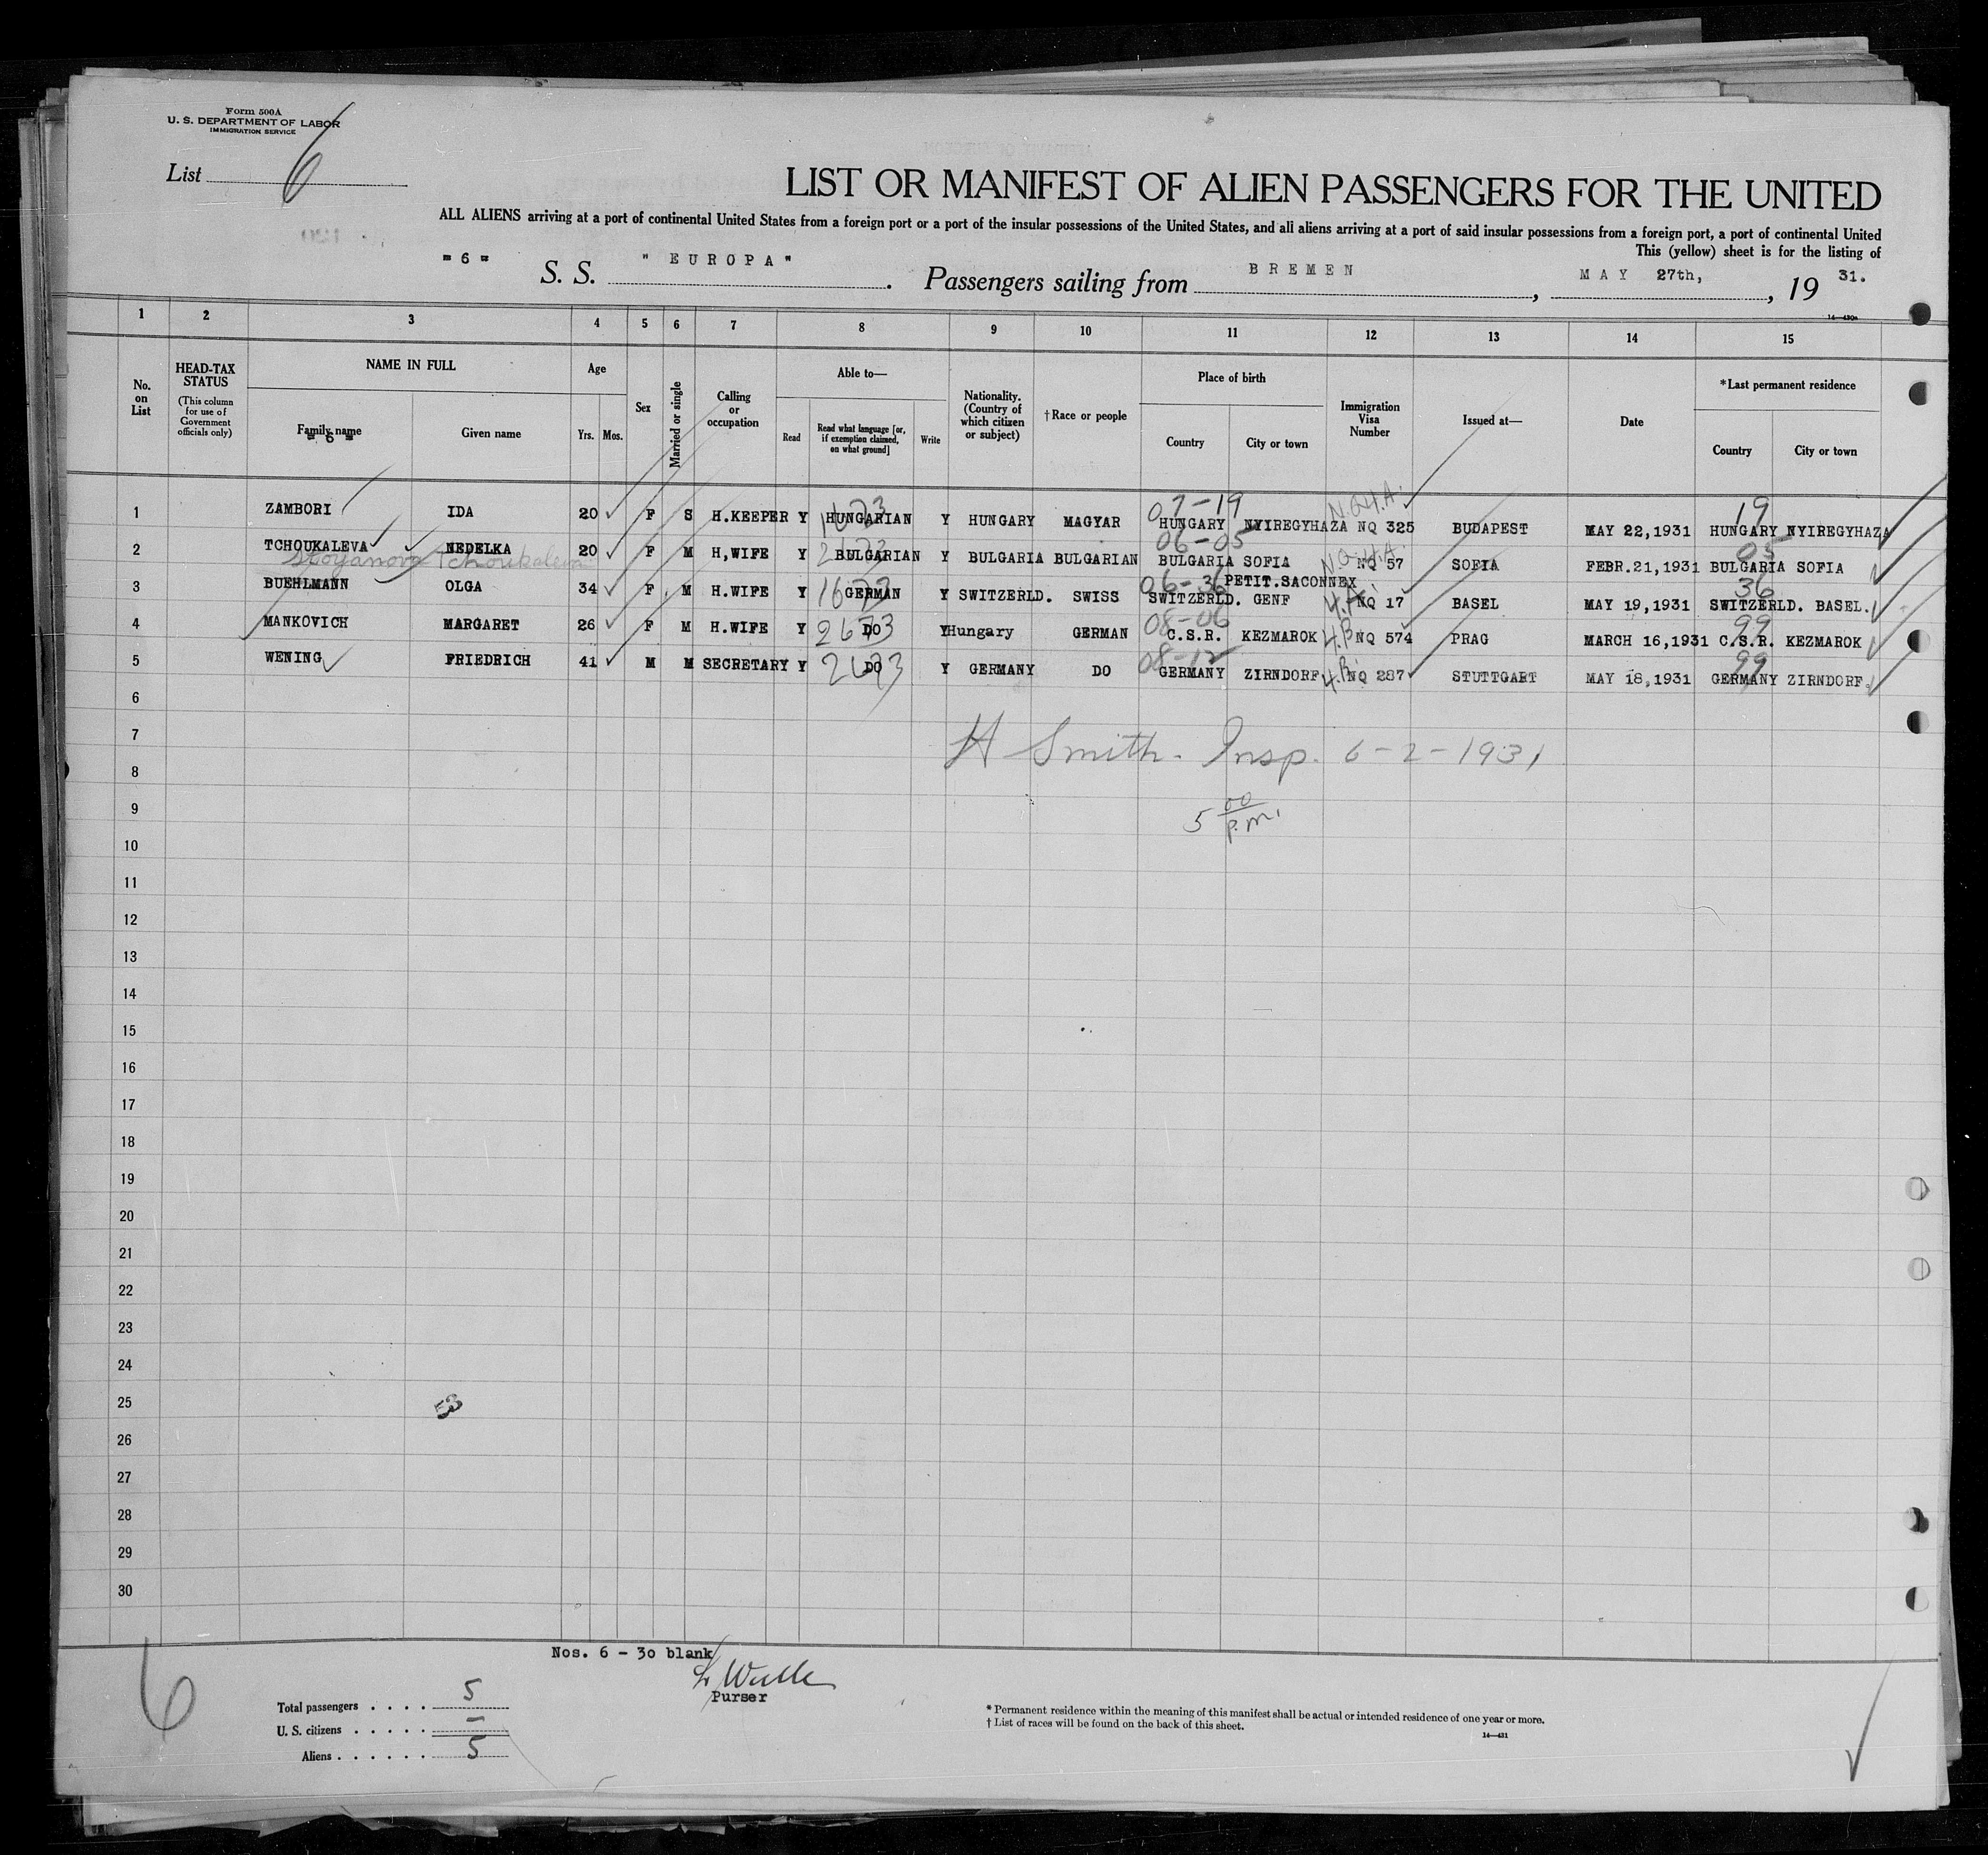 Form 500A
U. S. DEPARTMENT OF LABOR
IMMIGRATION SERVICE
List 6
LIST OR MANIFEST OF ALIEN PASSENGERS FOR THE UNITED
ALL ALIENS arriving at a port of continental United States from a foreign port or a port of the insular possessions of the United States, and all aliens arriving at a port of said insular possessions from a foreign port, a port of continental United
This (yellow) sheet is for the listing of
" 6 " S. S. " EUROPA " . Passengers sailing from BREMEN , MAY 27th, , 19 31.
14—430a
1 2 3 4 5 6 7 8 9 10 11 12 13 14 15
No. on List
HEAD-TAX STATUS
(This column for use of Government officials only)
NAME IN FULL
Family name
" 6 "
Given name
Age
Yrs. Mos.
Sex
Married or single
Calling or occupation
Able to—
Read
Read what language [or, if exemption claimed, on what ground]
Write
Nationality. (Country of which citizen or subject)
† Race or people
Place of birth
Country
City or town
Immigration Visa Number
Issued at—
Date
* Last permanent residence
Country
City or town
07-19 N.Q.4.A. 19
1 ZAMBORI IDA 20 F S H.KEEPER Y HUNGARIAN 1673 Y HUNGARY MAGYAR HUNGARY NYIREGYHAZA NQ 325 BUDAPEST MAY 22,1931 HUNGARY NYIREGYHAZA
06-05 05
2 TCHOUKALEVA NEDELKA 20 F M H,WIFE Y BULGARIAN 2673 Y BULGARIA BULGARIAN BULGARIA SOFIA NQ 57 SOFIA FEBR.21,1931 BULGARIA SOFIA
Stoyanova Tchoukaleva
06-36 PETIT.SACONNEX 36
3 BUEHLMANN OLGA 34 F M H.WIFE Y GERMAN 1673 Y SWITZERLD. SWISS SWITZERLD. GENF 4.A. NQ 17 BASEL MAY 19,1931 SWITZERLD. BASEL.
08-06 99
4 MANKOVICH MARGARET 26 F M H.WIFE Y DO 2673 Y Hungary GERMAN C.S.R. KEZMAROK NQ 574 PRAG MARCH 16,1931 C.S.R. KEZMAROK
08-12 99
5 WENING FRIEDRICH 41 M M SECRETARY Y DO 2673 Y GERMANY DO GERMANY ZIRNDORF NQ 287 STUTTGART MAY 18,1931 GERMANY ZIRNDORF.
6
7
H Smith. Insp. 6-2-1931
8
9
5 00 p.m.
10
11
12
13
14
15
16
17
18
19
20
21
22
23
24
25
26
27
28
29
30
Nos. 6 - 30 blank
Purser
6
Total passengers . . . . 5
U. S. citizens . . . . . —
Aliens . . . . . . 5
* Permanent residence within the meaning of this manifest shall be actual or intended residence of one year or more.
† List of races will be found on the back of this sheet.
14—431